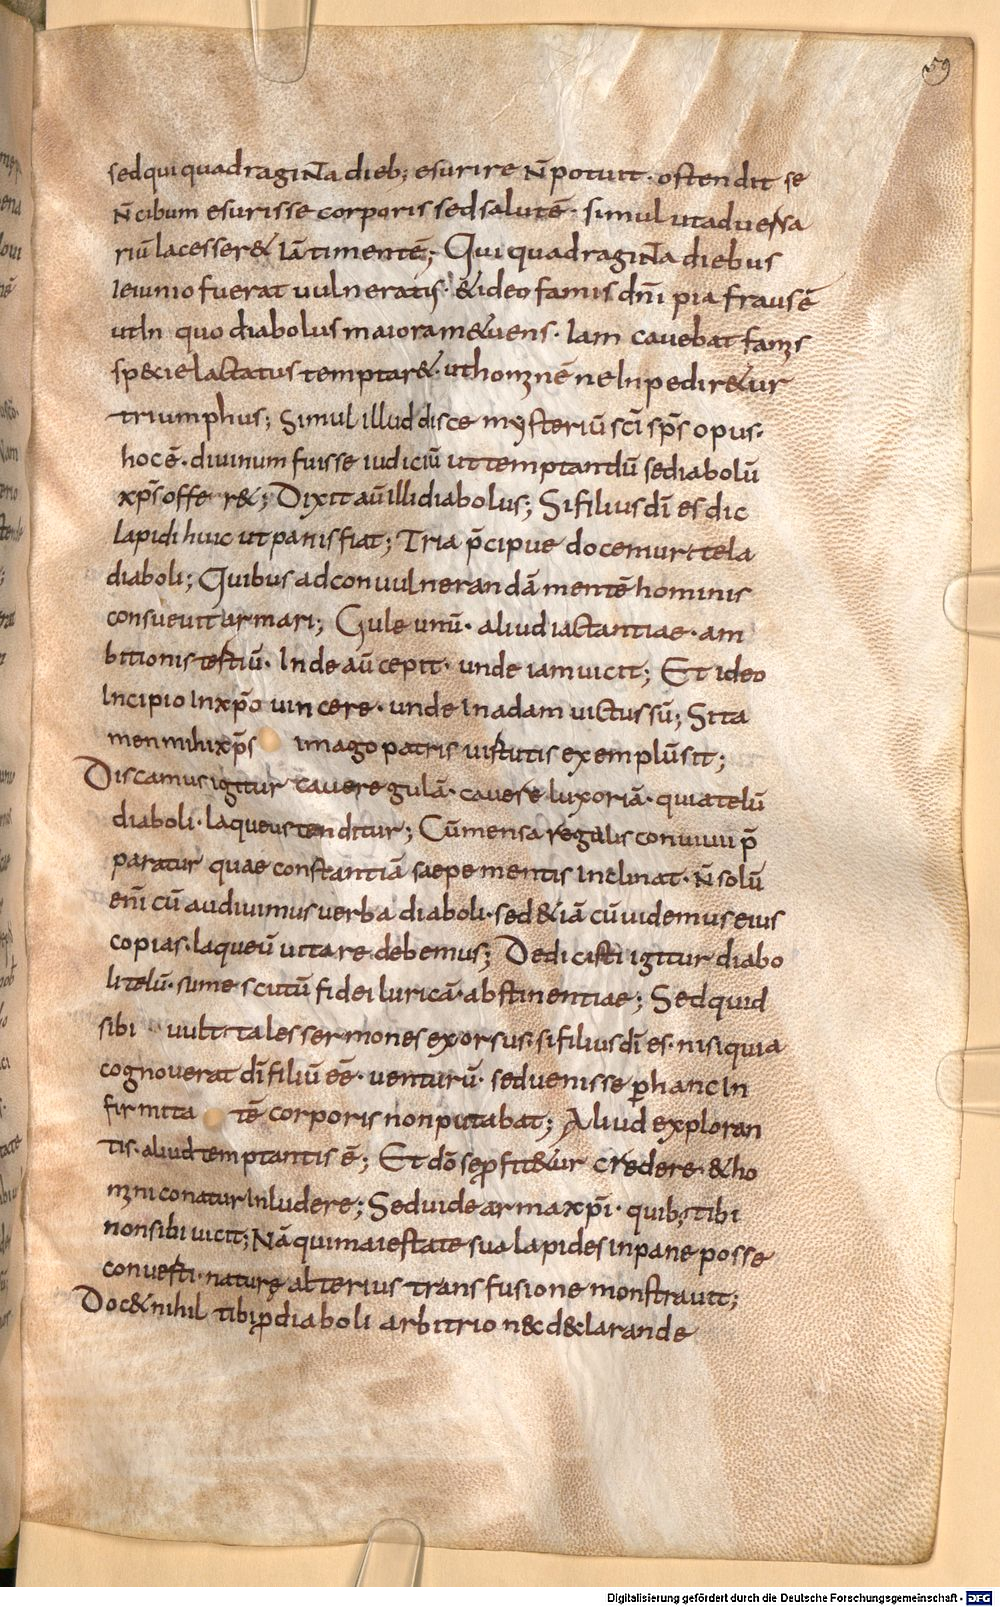 59
sed qui quadraginta dieb; esurire n̄ potuit · ostendit se
n̄ cibum esurisse corporis sed salutē · simul ut aduersa
riū lacesser& iā timentē; Qui quadraginta diebus
ieiunio fuerat uulneratis · & ideo famis dn̄i pia fraus ē
ut in quo diabolus maiora m&uens · Iam cauebat famis
speciae lactatus temptar& · ut hominē ne inpedir&ur
triumphus; Simul illud disce mysteriū sc̄i sp̄s opus ·
hoc ē · diuinum fuisse iudiciū ut temptandū se diabolū
xp̄s offerr&; Dixit aū illi diabolus; Si filius dī es dic
lapidi huic ut panis fiat; Tria p̄cipue docemur tela
diaboli; Quibus ad conuulnerandā mentē hominis
consueuit armari; Gule unū · aliud iactantiae · am
bitionis tertiū · Inde aū cepit · unde iam uicit; Et ideo
Incipio in xp̄o uincere · unde in adam uictus sū; Si ta
men mihi xp̄s imago patris uirtutis exemplū sit;
Discamus igitur cauere gulā · cauere luxoriā · quia telū
diaboli · laqueus tenditur; Cū mensa regalis conuiuii p̄
paratur quae constantiā saepe mentis inclinat · n̄ solū
enī cū audiuimus uerba diaboli · sed & iā cū uidemus eius
copias · laqueū uitare debemus; Dedicisti igitur diabo
li telū · sume scutū fidei luricā · abstinentiae; Sed quid
sibi uult tales sermones exorsus · si filius dī es · nisi quia
cognouerat dī filiū eē · uenturū · sed uenisse p̄ hanc in
firmita tē corporis non putabat; Aliud exploran
tis · aliud temptantis ē; Et dō se ꝓfit&ur credere · & ho
mini conatur inludere; Sed uide arma xp̄i · quib; tibi
non sibi uicit; Nā qui maiestate sua lapides in pane posse
conuerti · naturę alterius transfusione monstrauit;
Doc& nihil tibi ꝓ diaboli arbitrio n&c d&clarande
Digitalisierung gefördert durch die Deutsche Forschungsgemeinschaft - DFG